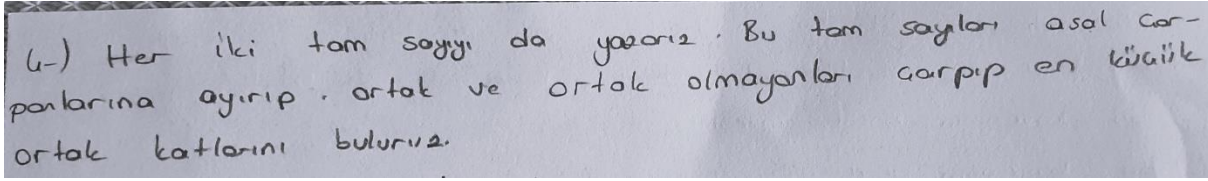 4-) Her iki tam sayıyı da yazarız. Bu tam sayıları asal çar-
panlarına ayırıp, ortak ve ortak olmayanları çarpıp en küçük
ortak katlarını buluruz.